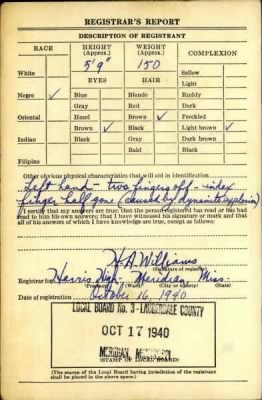 REGISTRAR'S REPORT
DESCRIPTION OF REGISTRANT
RACE HEIGHT (Approx.) WEIGHT (Approx.) COMPLEXION
5'9" 150
White Sallow
EYES HAIR Light
Negro ✓ Blue Blonde Ruddy
Gray Red Dark
Oriental Hazel Brown ✓ Freckled
Brown ✓ Black Light brown ✓
Indian Black Gray Dark brown
Bald Black
Filipino
Other obvious physical characteristics that will aid in identification
Left hand - two fingers off - index
finger half gone (caused by dynamite explosion)
I certify that my answers are true; that the person registered has read or has had
read to him his own answers; that I have witnessed his signature or mark and that
all of his answers of which I have knowledge are true, except as follows:
H.A. Williams
(Signature of registrar)
Registrar for Harris High - Meridian, Miss.
(Precinct) (Ward) (City or county) (State)
Date of registration October 16, 1940
LOCAL BOARD No. 3 - LAUDERDALE COUNTY
OCT 17 1940
MERIDIAN,
(STAMP OF LOCAL BOARD)
(The stamp of the Local Board having jurisdiction of the registrant
shall be placed in the above space.)